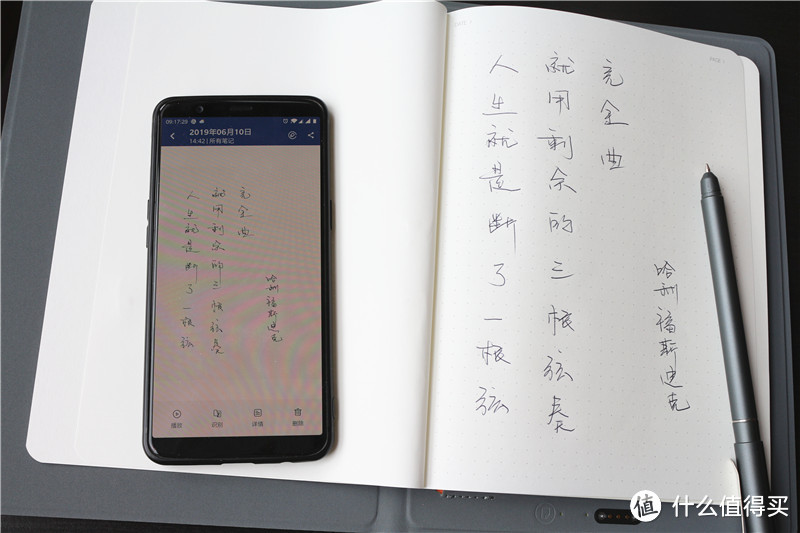 09:17:29
2019年06月10日
14:42 | 所有笔记
人生就是断了一根弦
就用剩余的三根弦奏
完全曲
哈利福斯迪克
播放 识别 详情 删除
人生就是断了一根弦
就用剩余的三根弦奏
完全曲
哈利福斯迪克
值 什么值得买